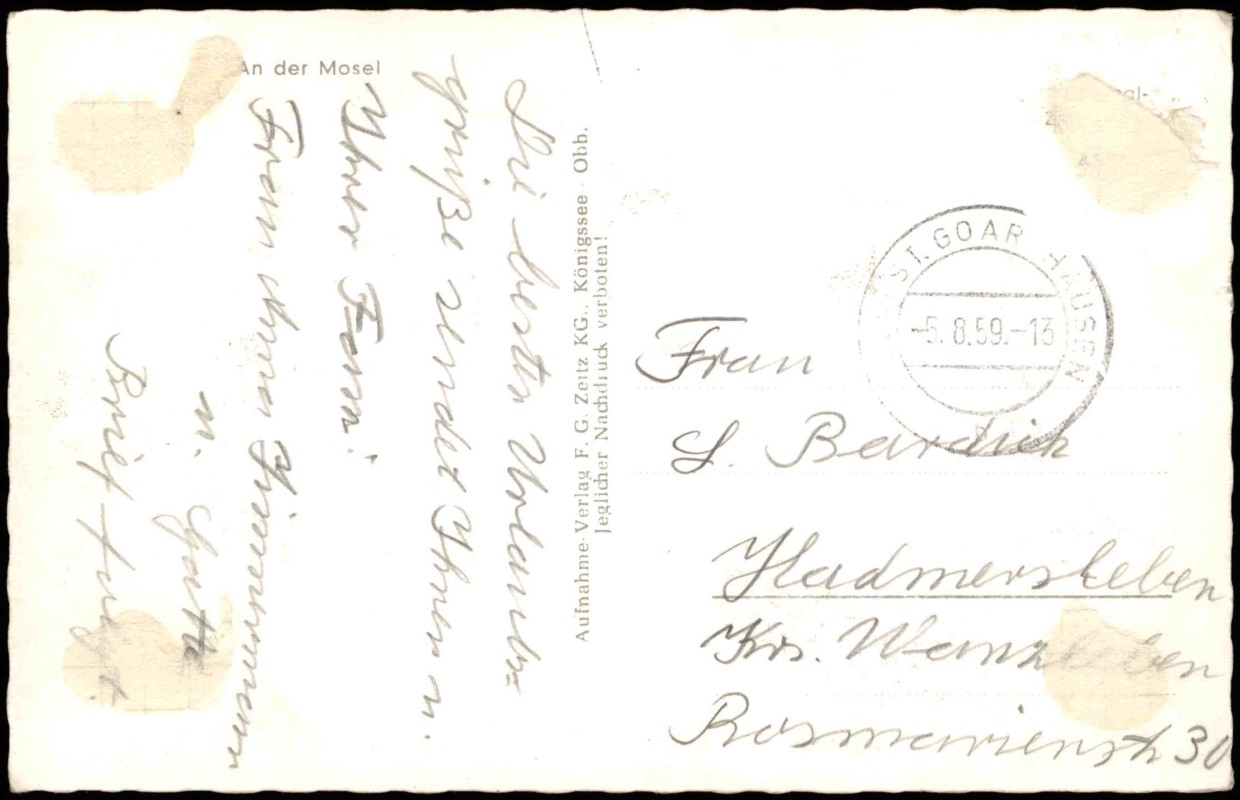 An der Mosel
Die besten Urlaubs=
grüße sendet Ihnen u.
Ihrer Fam.
Fram
u. Gatte
Brief folgt.
Aufnahme-Verlag F. G. Zeitz KG., Königssee - Obb.
Jeglicher Nachdruck verboten!
ST. GOARSHAUSEN
-5.8.59.-13
Frau
Bardick
Hadmersleben
Krs. Wanzleben
Rosmarienstr 30